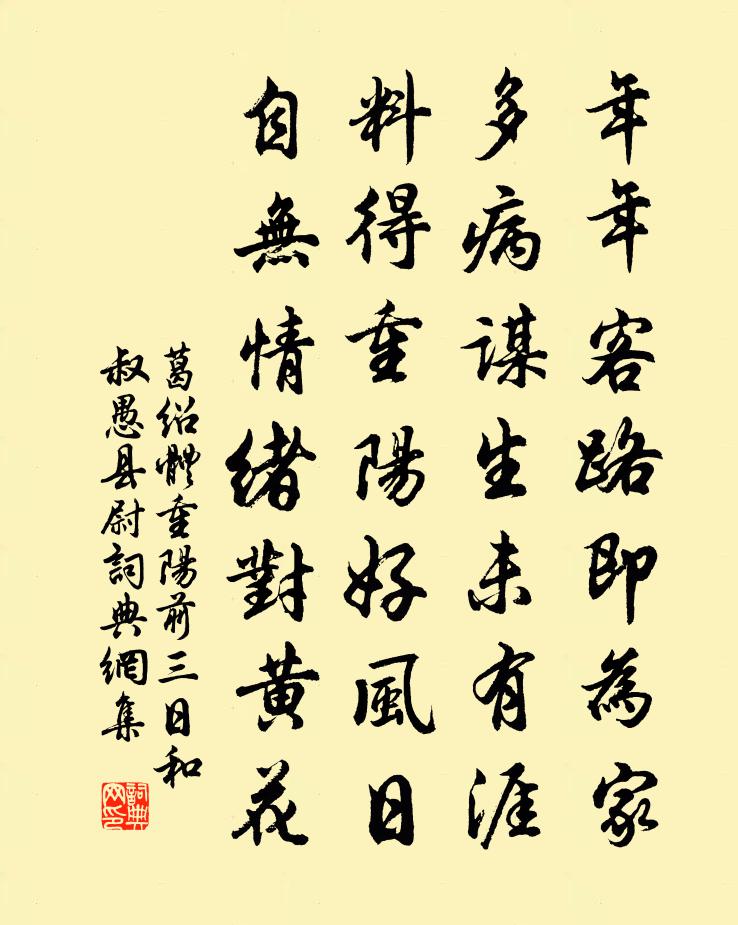 年年客路即為家
多病謀生未有涯
料得重陽好風日
自無情緒對黃花
葛紹體重陽前三日和
叔愚县尉詞典網集
詞典网印